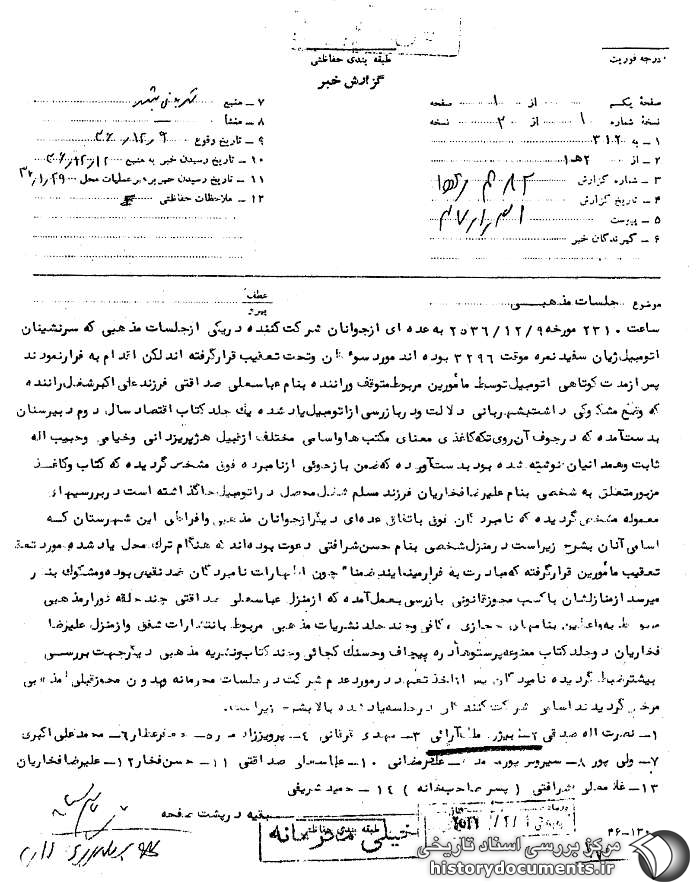 درجه فوریت
طبقه بندی حفاظتی
گزارش خبر
صفحه یکم از ۱ صفحه
نسخه شماره ۱ از ۲ نسخه
۱ ـ به ۳۱۲
۲ ـ از
۳ ـ شماره گزارش
۴ ـ تاریخ گزارش
۵ ـ پیوست
۶ ـ گیرندگان خبر
۷ ـ منبع
۸ ـ منشأ
۹ ـ تاریخ وقوع ۳۶/۱۲/۹
۱۰ ـ تاریخ رسیدن خبر به منبع ۳۶/۱۲/۱۲
۱۱ ـ تاریخ رسیدن خبر به رهبر عملیات محل
۱۲ ـ ملاحظات حفاظتی
موضوع جلسات مذهبی
عطف
پیرو
ساعت ۲۳۱۰ مورخه ۲۵۳۶/۱۲/۹ به عده ای از جوانان شرکت کننده در یکی از جلسات مذهبی که سرنشینان
اتومبیل ژیان سفید نمره موقت ۳۲۹۶ بوده اند مورد سو ظن و تحت تعقیب قرار گرفته اند لکن اقدام به فرار نمودند
پس از مدت کوتاهی اتومبیل توسط مأمورین مربوط متوقف و راننده بنام عباسعلی صداقتی فرزند علی اکبر شغل راننده
که وضع مشکوکی داشت بشهربانی دلالت و در بازرسی از اتومبیل یاد شده یک جلد کتاب اقتصاد سال دوم دبیرستان
بدست آمده که در جوف آن روی تکه کاغذی معنای مکتب ها و اسامی مختلف از قبیل هژبر یزدانی و خیامی و حبیب اله
ثابت و همدانیان نوشته شده بود بدست آورده که ضمن بازجوئی از نامبرده فوق مشخص گردیده که کتاب و کاغذ
مزبور متعلق به شخصی بنام علیرضا فخاریان فرزند مسلم شغل محصل در اتومبیل جا گذاشته است در بررسیهای
معموله مشخص گردیده که نامبردگان فوق باتفاق عده ای دیگر از جوانان مذهبی و افراطی این شهرستان که
اسامی آنان بشرح زیر است در منزل شخصی بنام حسن شرافتی دعوت بوده اند که هنگام ترک محل یاد شده مورد
تعقیب مأمورین قرار گرفته که مبادرت به فرار مینمایند ضمنا" چون اظهارات نامبردگان ضد نقیض بوده و مشکوک بنظر
میرسد از منازلشان با کسب مجوز قانونی بازرسی بعمل آمده که از منزل عباسعلی صداقتی چند حلقه نوار مذهبی
مربوط به واعظین بنامهای حجازی و کافی و چند جلد نشریات مذهبی مربوط بانتشارات شفق و از منزل علیرضا
فخاریان دو جلد کتاب ممنوعه پرستو ها در قاف و حسنک کجائی و چند کتاب و نشریه مذهبی دیگر جهت بررسی
بیشتر ضبط گردیده نامبردگان پس از اخذ تعهد در مورد عدم شرکت در جلسات محرمانه و بدون مجوز قبلی مذهبی
مرخص گردیدند اسامی شرکت کنندگان در جلسه یاد شده بالا بشرح زیر است.
۱ـ نصرت اله صدقی ۲ـ بیژن ۳ـ مهدی قربانی ۴ـ پرویز زاد ۵ـ جعفر عطار ۶ـ محمد علی اکبری
۷ـ ولی پور ۸ـ سیروس پور ـ علیرضائی ۱۰ـ عباسعلی صداقتی ۱۱ـ حسن فخار ۱۲ـ علیرضا فخاریان
۱۳ـ غلامعلی شرافتی ( پسر صاحبخانه ) ۱۴ـ حمید شریفی
بقیه در پشت صفحه
طبقه بندی حفاظتی
خیلی محرمانه
مرکز بررسی اسناد تاریخی
historydocuments.ir